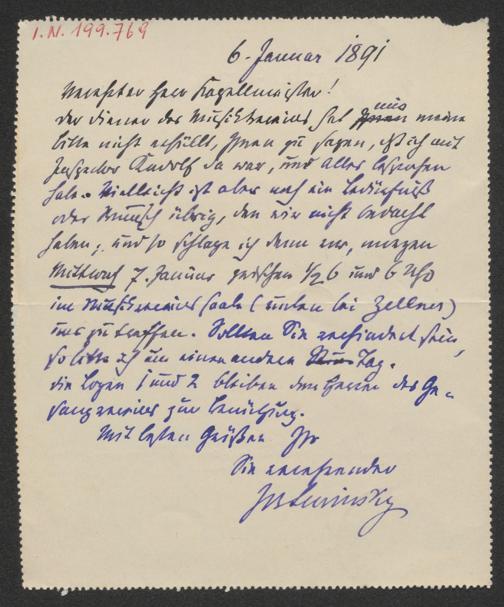 I.N. 199.769
6. Januar 1891
Verehrter Herr Kapellmeister!
Der Diener des Musikvereines hat mir meine
Bitte nicht erfüllt, Ihnen zu sagen, daß ich mit
Inspector Rudolf da war, und alles besprochen
habe. Vielleicht ist aber noch ein Bedürfniß
oder Wunsch übrig, den wir nicht bedacht
haben, und so schlage ich denn vor, morgen
Mittwoch 7. Januar zwischen 1/2 6 und 6 Uhr
im Musikvereinssaale (unten bei Zellner)
uns zu treffen. Sollten Sie verhindert sein,
so bitte ich um einen andern Tag.
Die Logen 1 und 2 bleiben den Herren des Ge-
sangvereines zur Benützung.
Mit besten Grüßen Ihr
Sie verehrender
JosLewinsky